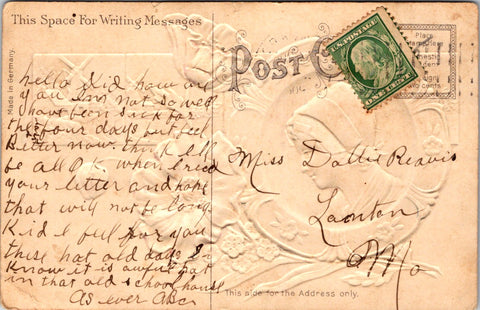 This Space For Writing Messages
POST
U.S. POSTAGE
ONE CENT
Place
Made in Germany.
hello Kid how are
you I'm not so well
have been sick for
the four days but feel
Better now think I'll
be all O.K. when I
your letter and hope
that will not be long
Kid I feel for you
these hot old days I
know it is awful hot
in that old school house
As ever ABC
Miss Dollie Reavis
Mo
This side for the Address only.